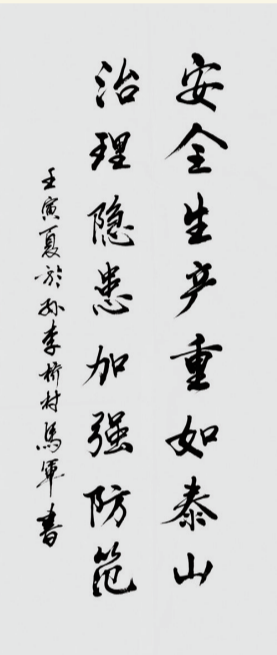 安全生产重如泰山
治理隐患加强防范
壬寅夏於孙李桥村馬軍書